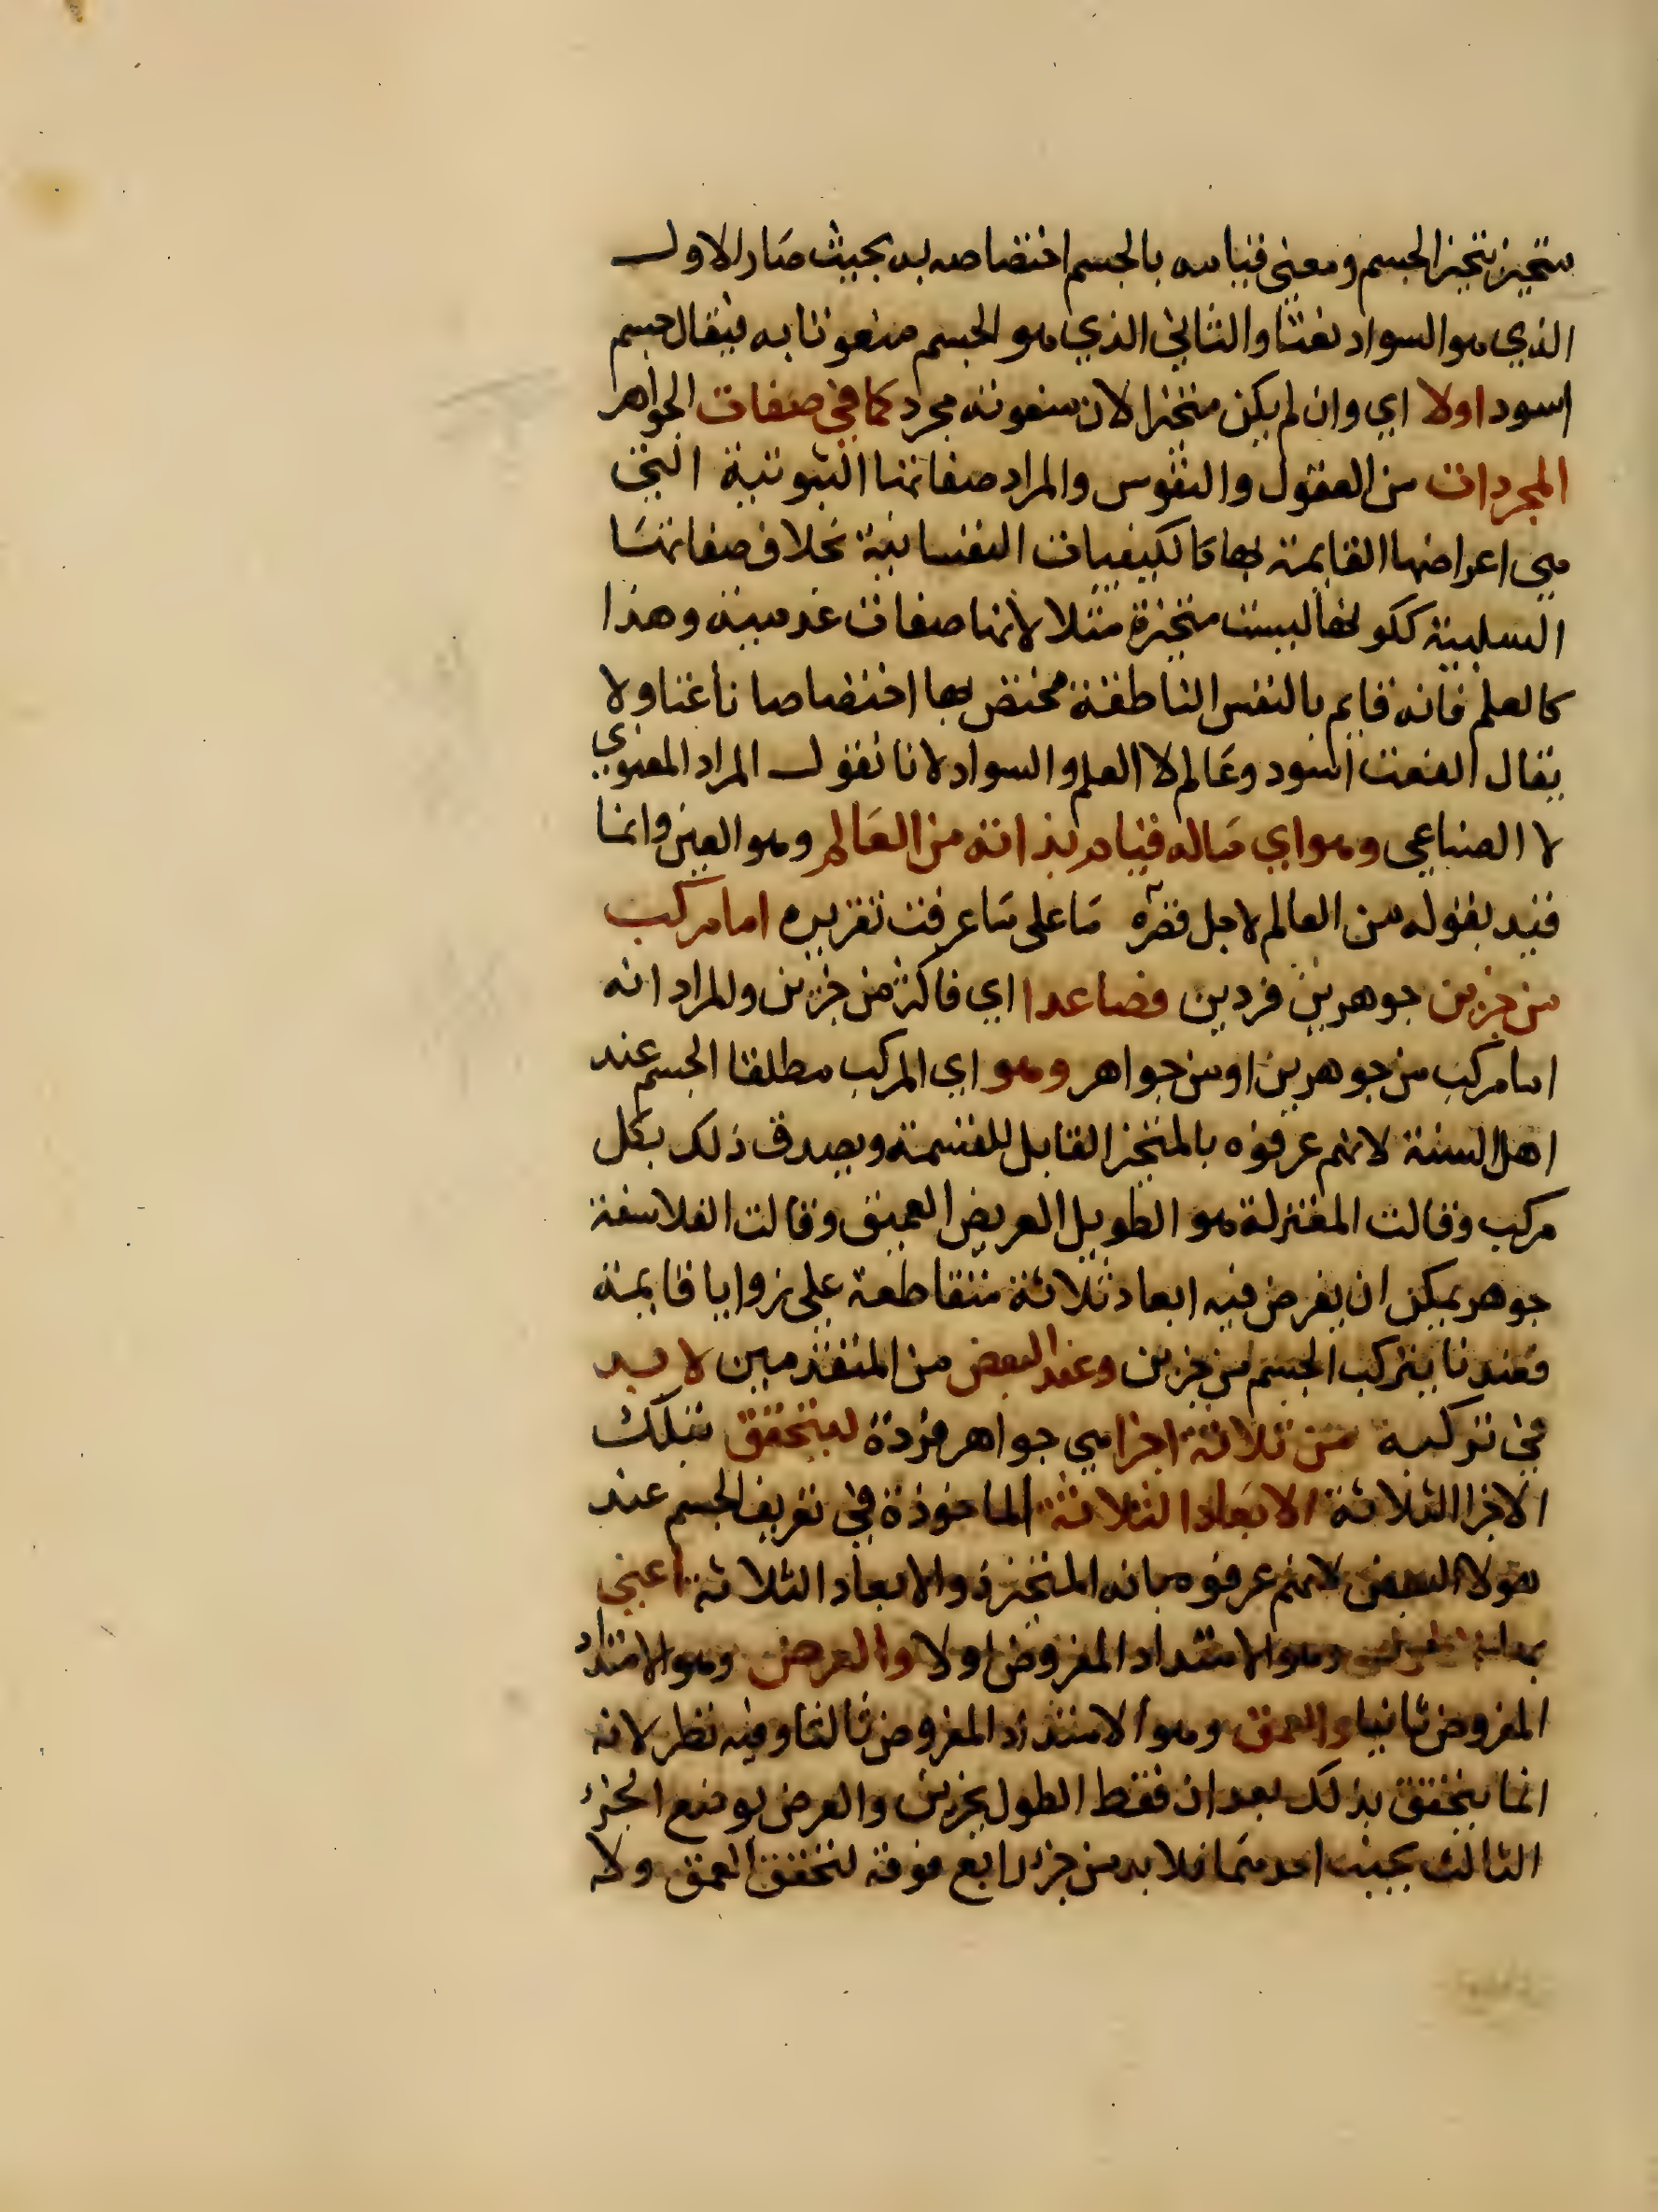 متحيز بتحيز الجسم ومعنى قيامه بالجسم اختصاصه به بحيث صار الاول
الذي هو السواد نعتا والثاني الذي هو الجسم منعوتا به فيقال جسم
اسود اولا اي وان لم يكن متحيزا لان منعوته مجرد كما في صفات الجواهر
المجردات من العقول والنفوس والمراد صفاتها الثبوتية التي
هي اعراضها القايمة بها كالكيفيات النفسانية بخلاف صفاتها
السلبية ككونها ليست متحيزة مثلا لانها صفات عدمية وهذا
كالعلم فانه قايم بالنفس الناطقة مختص بها اختصاصا ناعتا ولا
يقال النعت اسود وعالم لا العلم والسواد لانا نقول المراد المعنوي
لا الصناعي وهو اي ماله قيام بذاته من العالم وهو العين وانما
قيد بقوله من العالم لاجل ما على ما عرفت تقريره اما مركب
من جزين جوهرين فردين فصاعدا اي فاكثر من جزين والمراد انه
اما مركب من جوهرين او من جواهر وهو اي المركب مطلقا الجسم عند
اهل السنة لانهم عرفوه بالمتحيز القابل للقسمة ويصدق ذلك بكل
مركب وقالت المعتزلة هو الطويل العريض العميق وقالت الفلاسفة
جوهر يمكن ان يفرض فيه ابعاد ثلاثة متقاطعة على زوايا قايمة
فعندنا يتركب الجسم من جزين وعند البعض من المتقدمين لا بد
في تركبه من ثلاثة اجزا هي جواهر فردة ليتحقق بتلك
الاجزا الثلاثة الابعاد الثلاثة الماخوذة في تعريف الجسم عند
هولا البعض لانهم عرفوه بانه المتحيز ذو الابعاد الثلاثة اعني
بها الطول وهو الامتداد المفروض اولا والعرض وهو الامتداد
المفروض ثانيا والعمق وهو الامتداد المفروض ثالثا وفيه نظر لانه
انما يتحقق بذلك بعدان فقط الطول بجزين والعرض بوضع الجزء
الثالث بجنب احدهما فلا بد من جزء رابع فوقه لتحقق العمق ولا